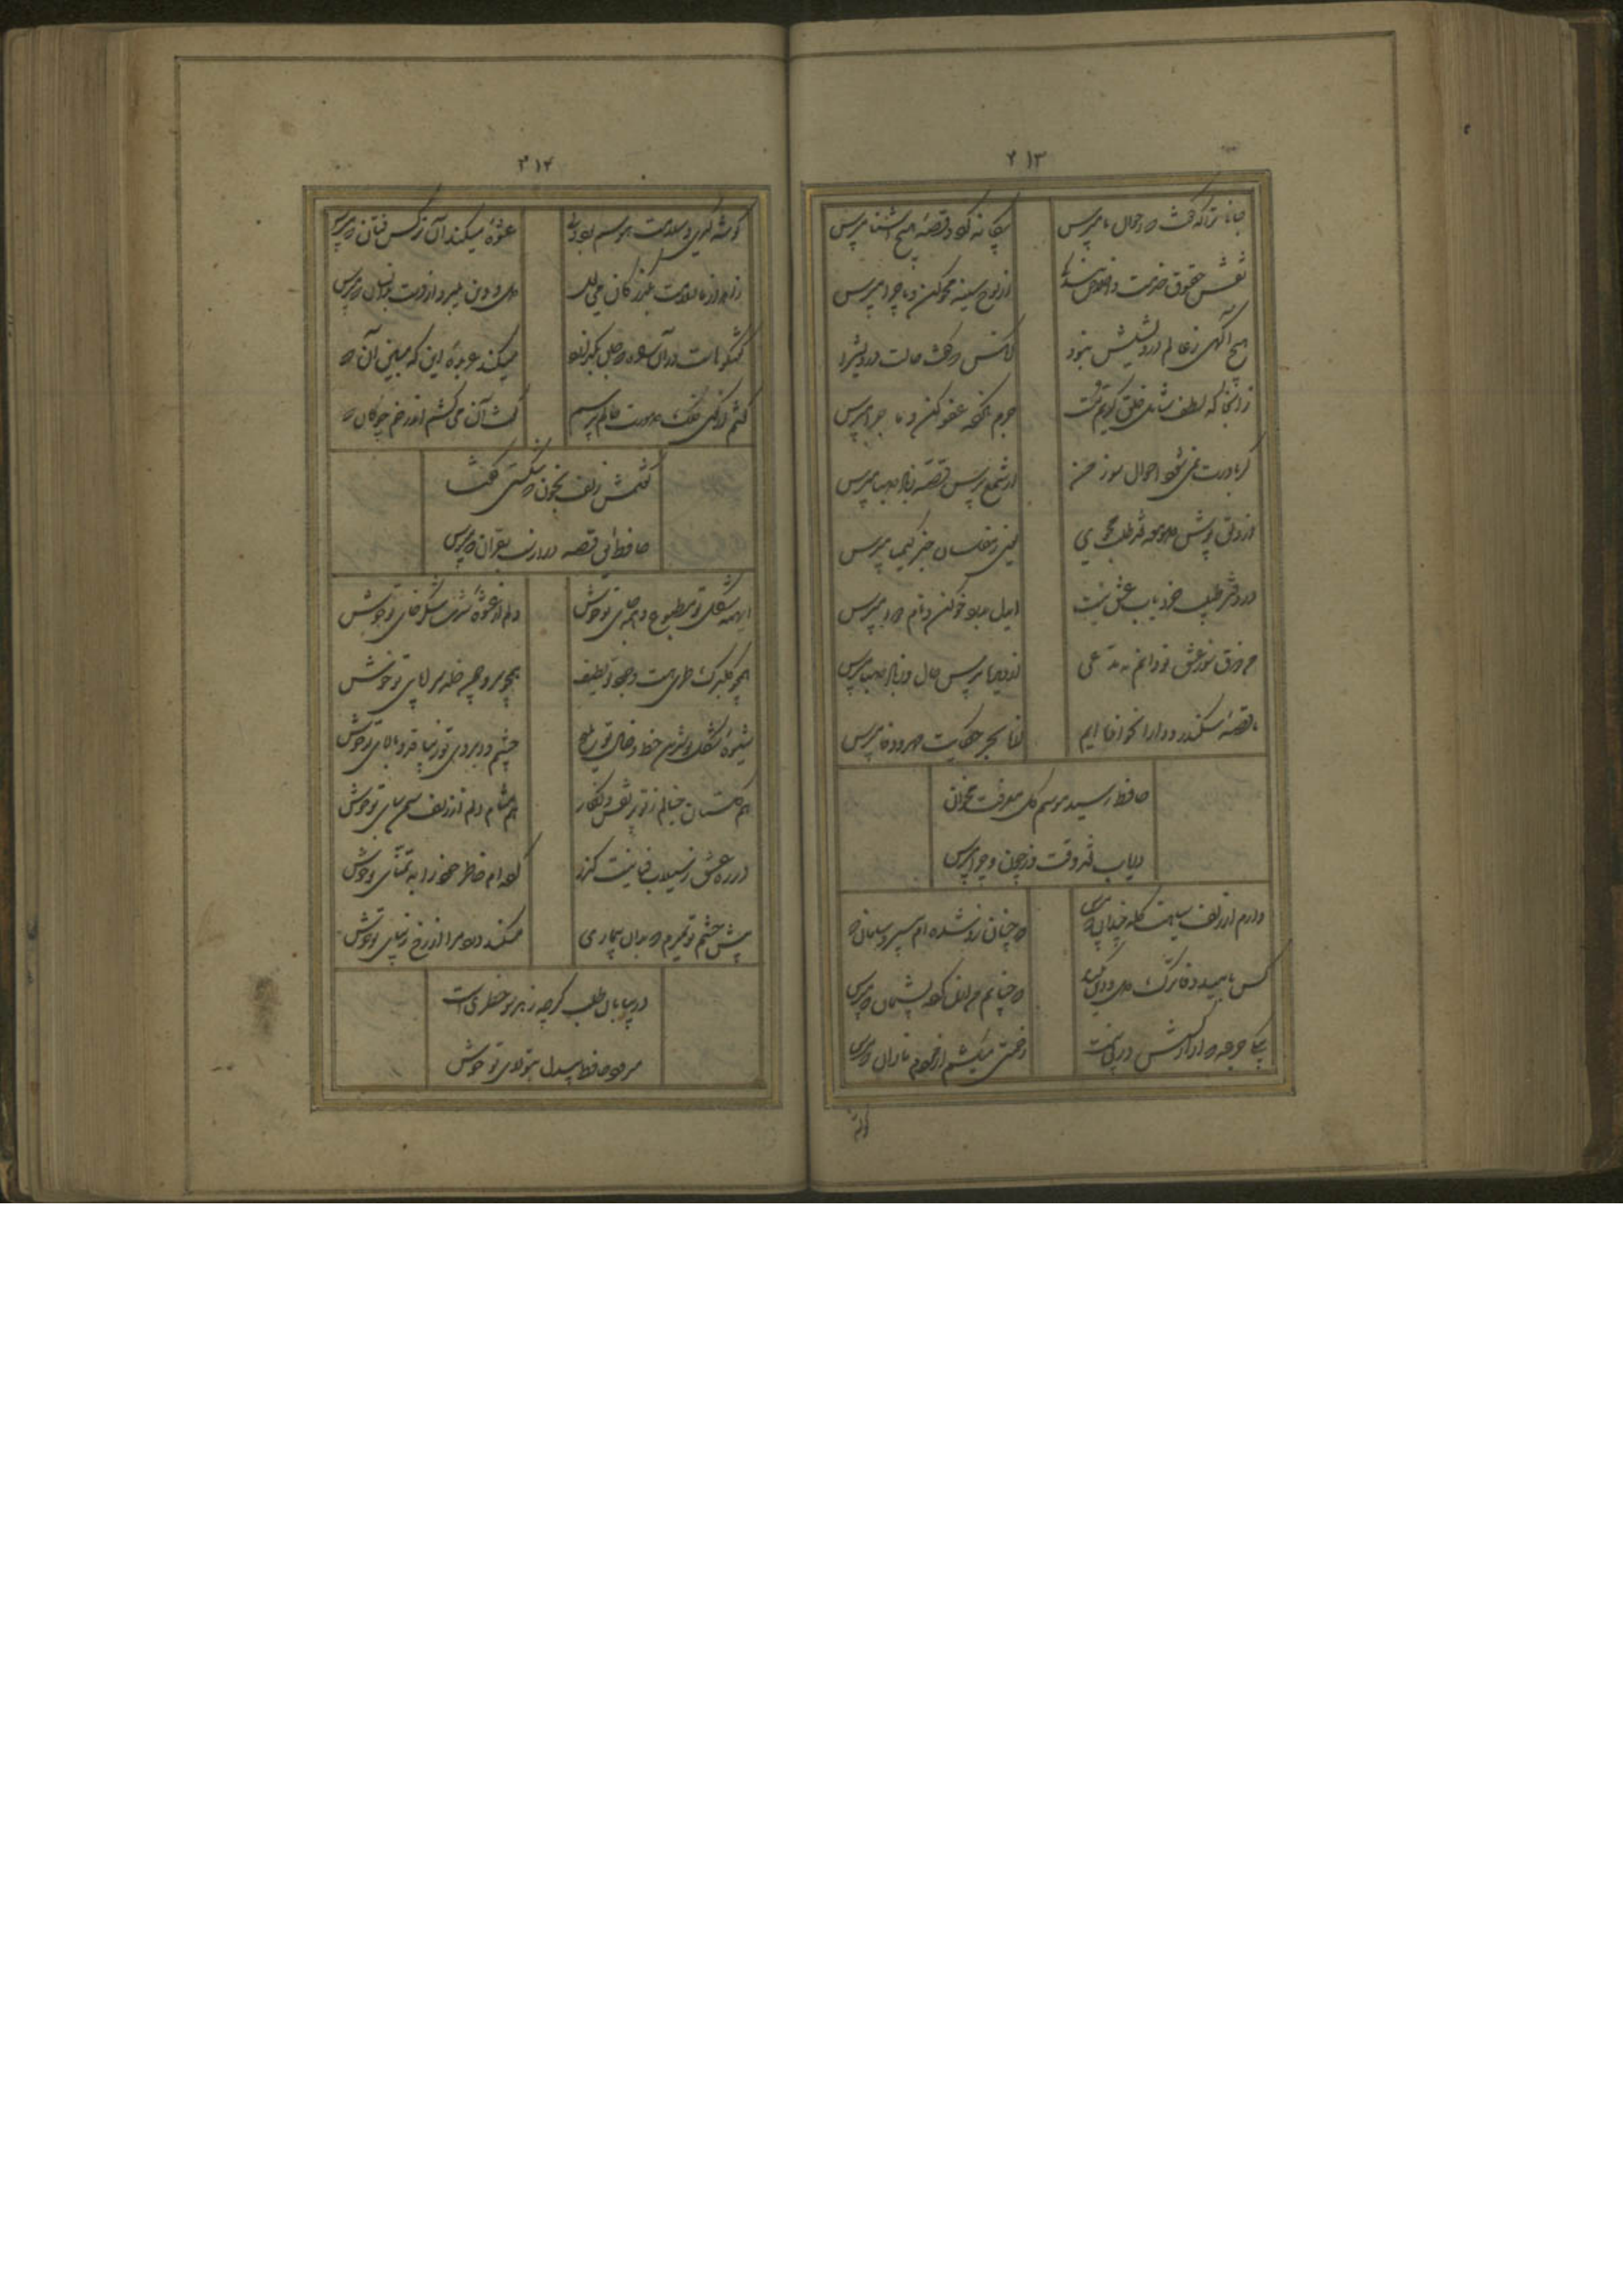 ۲۱۳
جانا ترا که گفت که احوال ما مپرس
بیگانه گرد و قصهٔ هیچ آشنا مپرس
نقش حقوق خدمت و اخلاص بندگی
از لوح سینه محو کن و ماجرا مپرس
هیچ آگهی ز عالم درویشیش نبود
آنکس که گفت حالت درویش را
زانجا که لطف شامل و خلق کریم تست
جرم نکرده عفو کن و ماجرا مپرس
گر باورت نمی شود احوال سوز من
از شمع پرس قصه ز باد صبا مپرس
از دلق پوش صومعه نقد طلب مجوی
یعنی ز مفلسان خبر کیمیا مپرس
در دفتر طبیب خرد باب عشق نیست
ایدل بدرد خو کن و نام دوا مپرس
من ذوق سوز عشق تو دانم نه مدعی
از ما بپرس حال و ز باد صبا مپرس
ما قصهٔ سکندر و دارا نخوانده ایم
از ما بجز حکایت مهر و وفا مپرس
حافظ رسید موسم گل معرفت مخوان
دریاب نقد وقت و ز چون و چرا مپرس
دارم از زلف سیاهت گله چندان که مپرس
که چنان زو شده ام بی سر و سامان که
کس بامید وفا ترک دل و دین مکناد
که چنانم من ازین کرده پشیمان که مپرس
بیکی جرعه که آزار کسش در پی نیست
زحمتی میکشم از مردم نادان که مپرس
۲۱۴
گوشه گیری و سلامت هوسم بود ولی
عشوهٔ میکند آن نرگس فتان که مپرس
زاهد از ما بسلامت بگذر کان می لعل
دل و دین میبرد از دست بدانسان که مپرس
گفتگوهاست درین راه که جان بگدازد
میکند عربده این که مبین آن که
گفتم از گوی فلک صورت حالی پرسم
گفت آن می کشم اندر خم چوگان که
گفتمش زلف بخون که شکستی گفتا
حافظ این قصه دراز است بقرآن که مپرس
ای همه شکل تو مطبوع و همه جای تو خوش
دلم از عشوهٔ شیرین شکر خای تو خوش
همچو گلبرگ طری هست وجود تو لطیف
همچو سرو چمن خلد سراپای تو خوش
شیوهٔ شکل تو شیرین خط و خال تو ملیح
چشم و ابروی تو زیبا قد و بالای تو خوش
هم گلستان خیالم ز تو پر نقش و نگار
هم مشام دلم از زلف سمن سای تو خوش
در ره عشق ز سیلاب فنا نیست گذر
کرده ام خاطر خود را به تمنای تو خوش
پیش چشم تو بمیرم که بدان بیماری
میکند درد مرا از رخ زیبای تو خوش
در بیابان طلب گرچه ز هر سو خطریست
میرود حافظ بیدل بتولای تو خوش